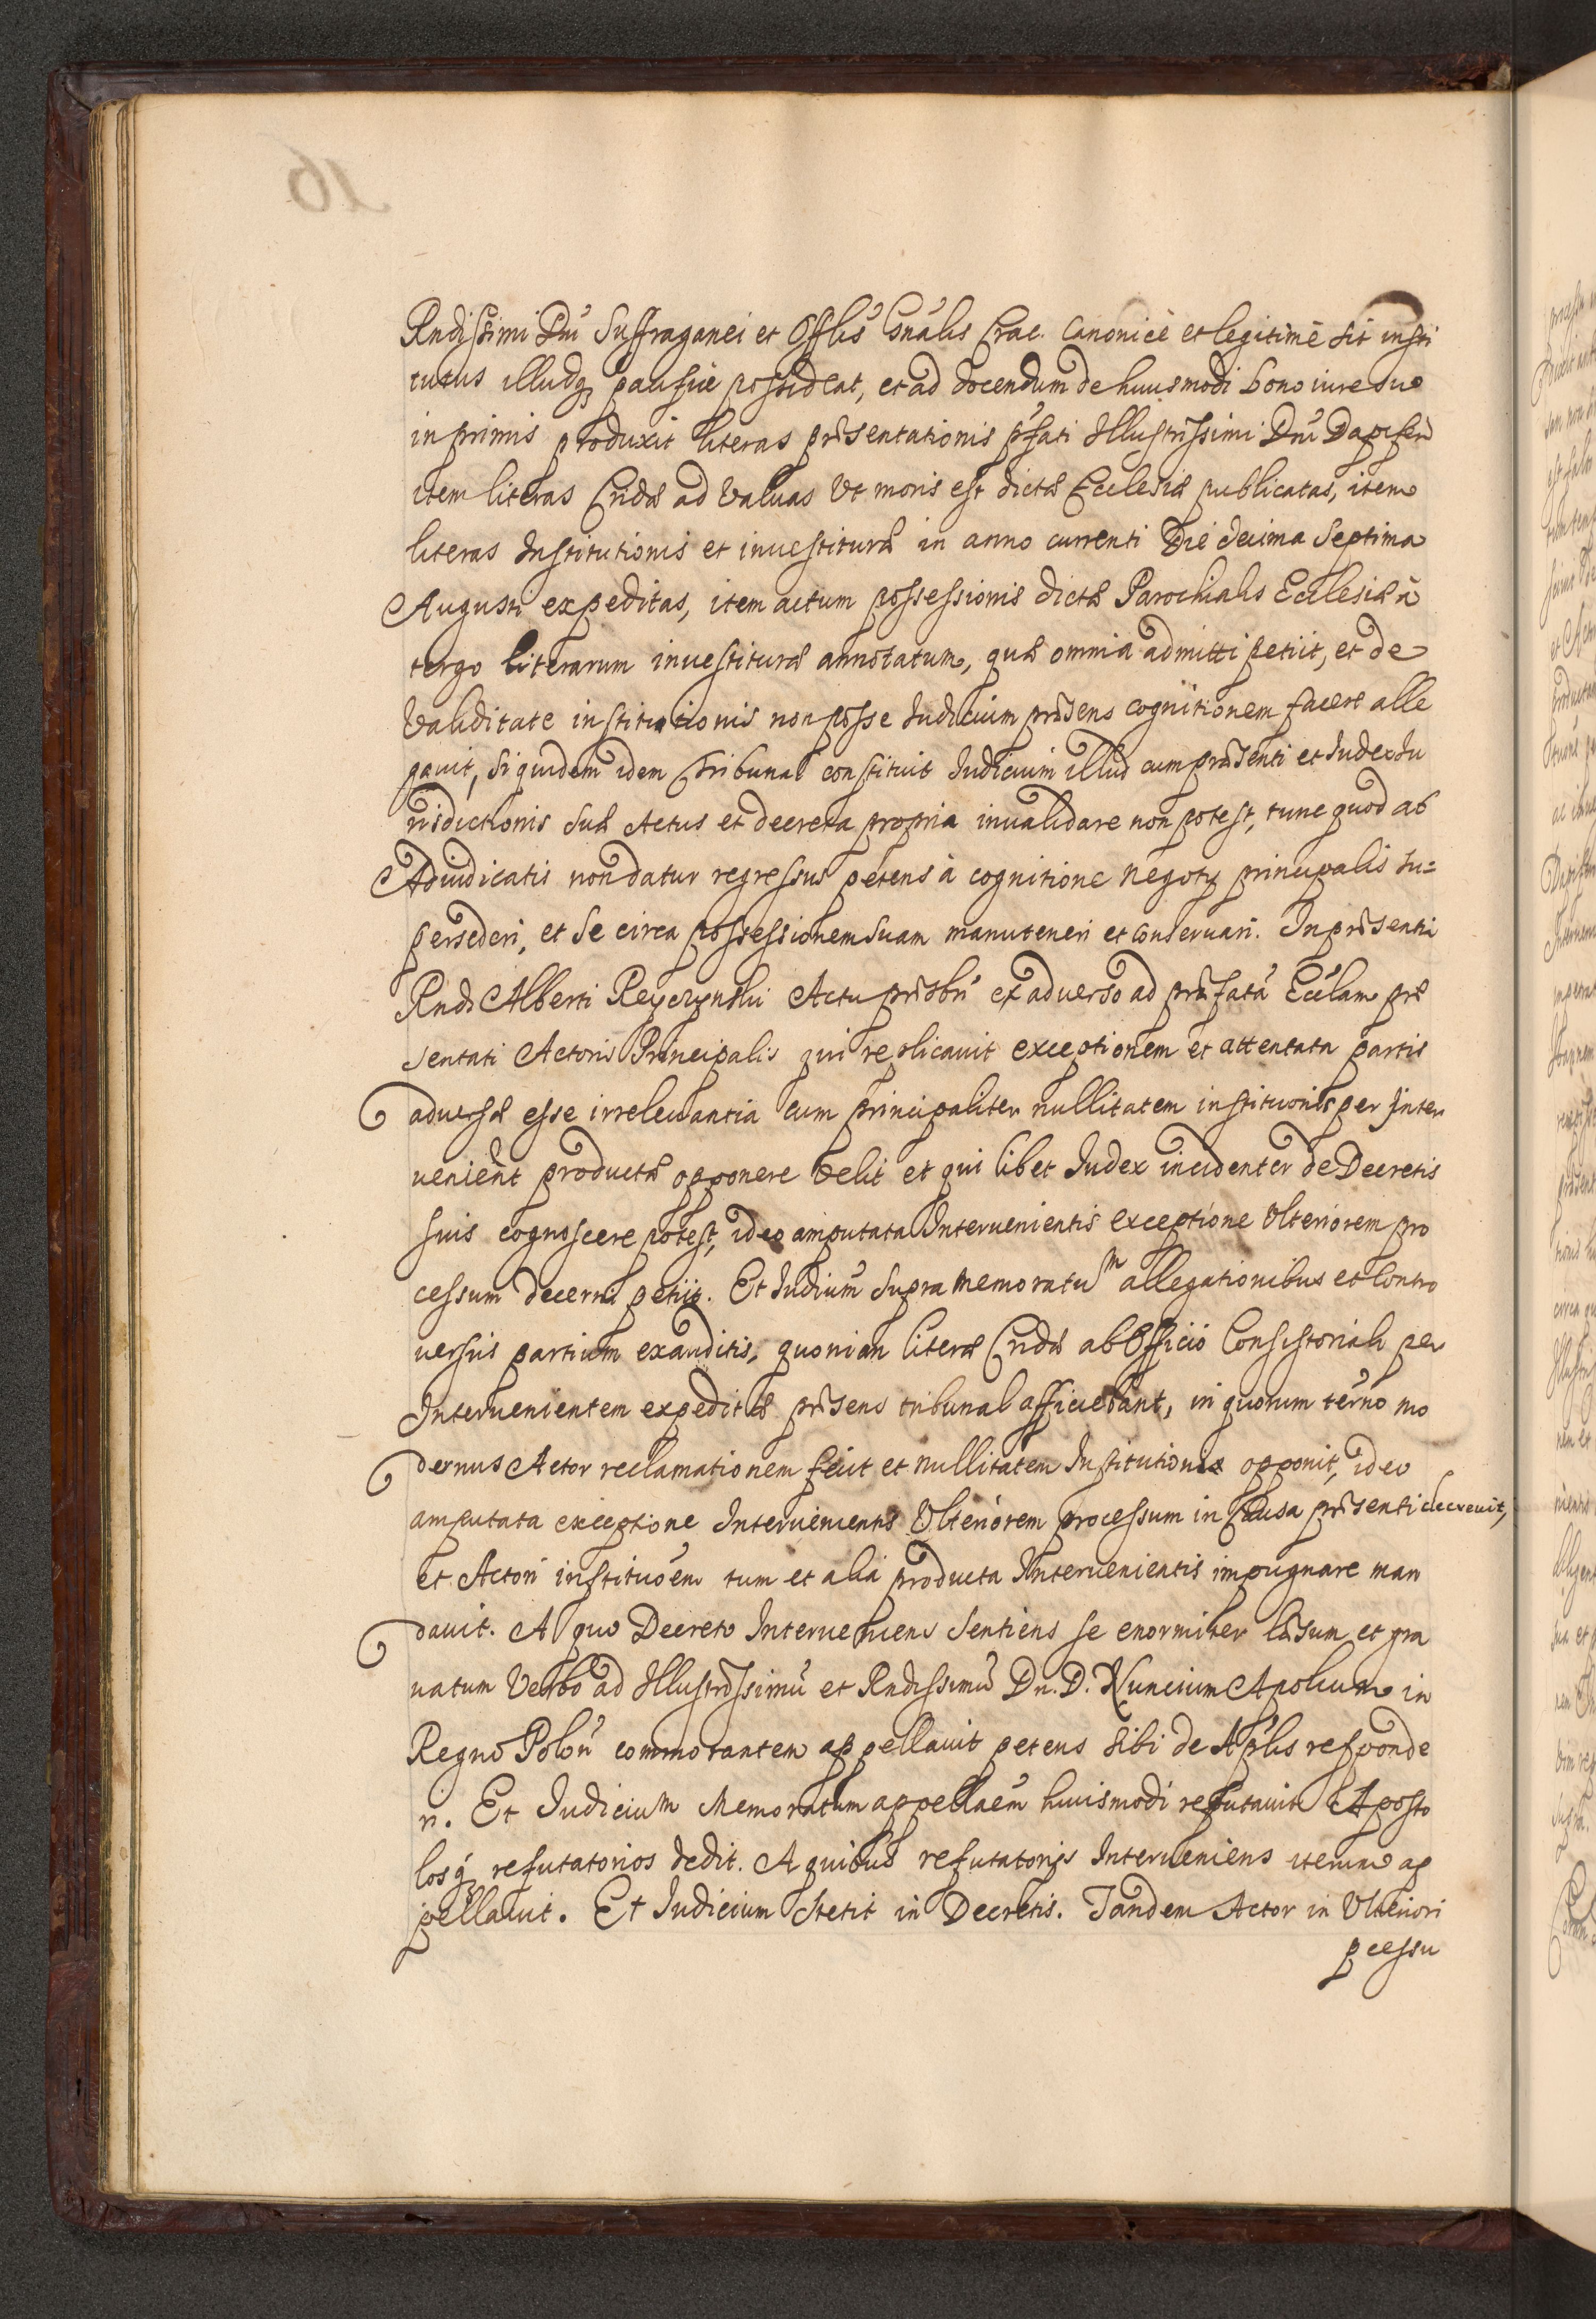 Rndissimi Dni Suffraganei et Offlis Gnalis Crac. Canonicè et legitimè sit insti
tutus illudq pacificè possideat, et ad docendum de huiusmodi bono iure suo
inprimis produxit literas præsentationis pfati Illustrissimi Dni Dapiferi
item literas Cridæ ad Valuas Vt moris est dictæ Ecclesiæ publicatas, item
literas Institutionis et inuestituræ in anno currenti Die decima Septima
Augusti expeditas, item actum possessionis dictæ Parochialis Ecclesiæ à
tergo literarum inuestituræ annotatum, quæ omnia admitti petiit, et de
Validitate institutionis non posse Iudicium præsens cognitionem facere alle
gauit, siquidem idem Tribunal constituit Iudicium illud cum præsenti et Iudex Iu
risdictionis suæ Actus et decreta propria inualidare non potest, tunc quod ab
Adiudicatis non datur regressus petens à cognitione negoty principalis su=
persederi, et se circa possessionem suam manuteneri et conseruari. In præsentia
Rndi Alberti Reyczynski Actu prsbri ex aduerso ad præfatã Ecclam præ
sentati Actoris Principalis qui replicauit exceptionem et attentata partis
aduersæ esse irreleuantia cum principaliter nullitatem institutionis per Inter
uenient productæ opponere velit et qui libet Iudex incidenter de Decretis
suis cognoscere potest, ideo amputata Interuenientis exceptione Vlteriorem pro
cessum decerni petiit. Et Iudium supra memoratum allegationibus et Contro
uersiis partium exauditis, quoniam literæ Cridæ ab Officio Consistoriali per
Interuenientem expeditæ præsens tribunal afficiebant, in quorum terno mo
dernus Actor reclamationem fecit et nullitatem Institutionis opponit, ideo
amputata exceptione Interuenientis Vlteriorem processum in Causa præsenti decreuit,
et Actori instituõem tum et alia producta Interuenientis impugnare man
dauit. A quo Decreto Interueniens sentiens se enormiter læsum et gra
uatum Verbo ad Illustrissimũ et Rndissimũ Dn. D. Nuncium Apolicum in
Regno Polon commorantem appellauit petens sibi de Aplis responde
ri. Et Iudicium Memoratum appellaẽm huiusmodi refutauit Aposto
losq refutatorios dedit. A quibus refutatorijs Interueniens iterum ap
pellauit. Et Iudicium stetit in Decretis. Tandem Actor in Vlteriori
pcessu